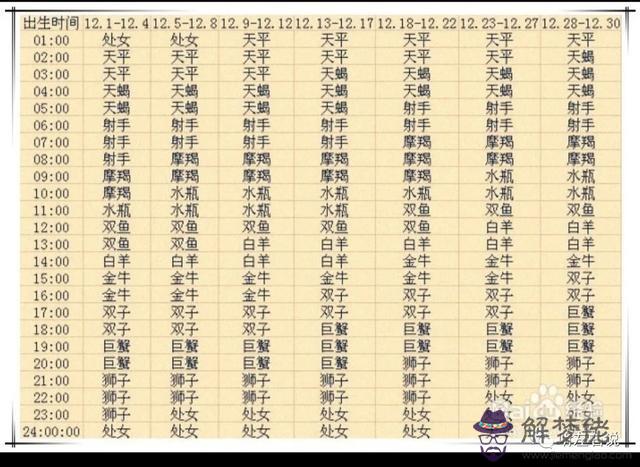 出生时间 12.1-12.4 12.5-12.8 12.9-12.12 12.13-12.17 12.18-12.22 12.23-12.27 12.28-12.30
01:00 处女 处女 天平 天平 天平 天平 天平
02:00 天平 天平 天平 天平 天平 天平 天蝎
03:00 天平 天平 天平 天蝎 天蝎 天蝎 天蝎
04:00 天蝎 天蝎 天蝎 天蝎 天蝎 天蝎 天蝎
05:00 天蝎 天蝎 天蝎 天蝎 射手 射手 射手
06:00 射手 射手 射手 射手 射手 射手 射手
07:00 射手 射手 射手 射手 摩羯 摩羯 摩羯
08:00 射手 摩羯 摩羯 摩羯 摩羯 摩羯 摩羯
09:00 摩羯 摩羯 摩羯 摩羯 摩羯 水瓶 水瓶
10:00 摩羯 水瓶 水瓶 水瓶 水瓶 水瓶 水瓶
11:00 水瓶 水瓶 水瓶 水瓶 双鱼 双鱼 双鱼
12:00 双鱼 双鱼 双鱼 双鱼 双鱼 白羊 白羊
13:00 双鱼 双鱼 白羊 白羊 白羊 白羊 白羊
14:00 白羊 白羊 白羊 白羊 金牛 金牛 金牛
15:00 金牛 金牛 金牛 金牛 金牛 金牛 双子
16:00 金牛 金牛 金牛 双子 双子 双子 双子
17:00 双子 双子 双子 双子 双子 双子 巨蟹
18:00 双子 双子 双子 巨蟹 巨蟹 巨蟹 巨蟹
19:00 巨蟹 巨蟹 巨蟹 巨蟹 巨蟹 巨蟹 巨蟹
20:00 巨蟹 巨蟹 巨蟹 巨蟹 狮子 狮子 狮子
21:00 狮子 狮子 狮子 狮子 狮子 狮子
22:00 狮子 狮子 狮子 狮子 处女 处女 处女
23:00 狮子 处女 处女 处女 处女
24:00:00 处女 处女 处女 处女 处女
解梦佬